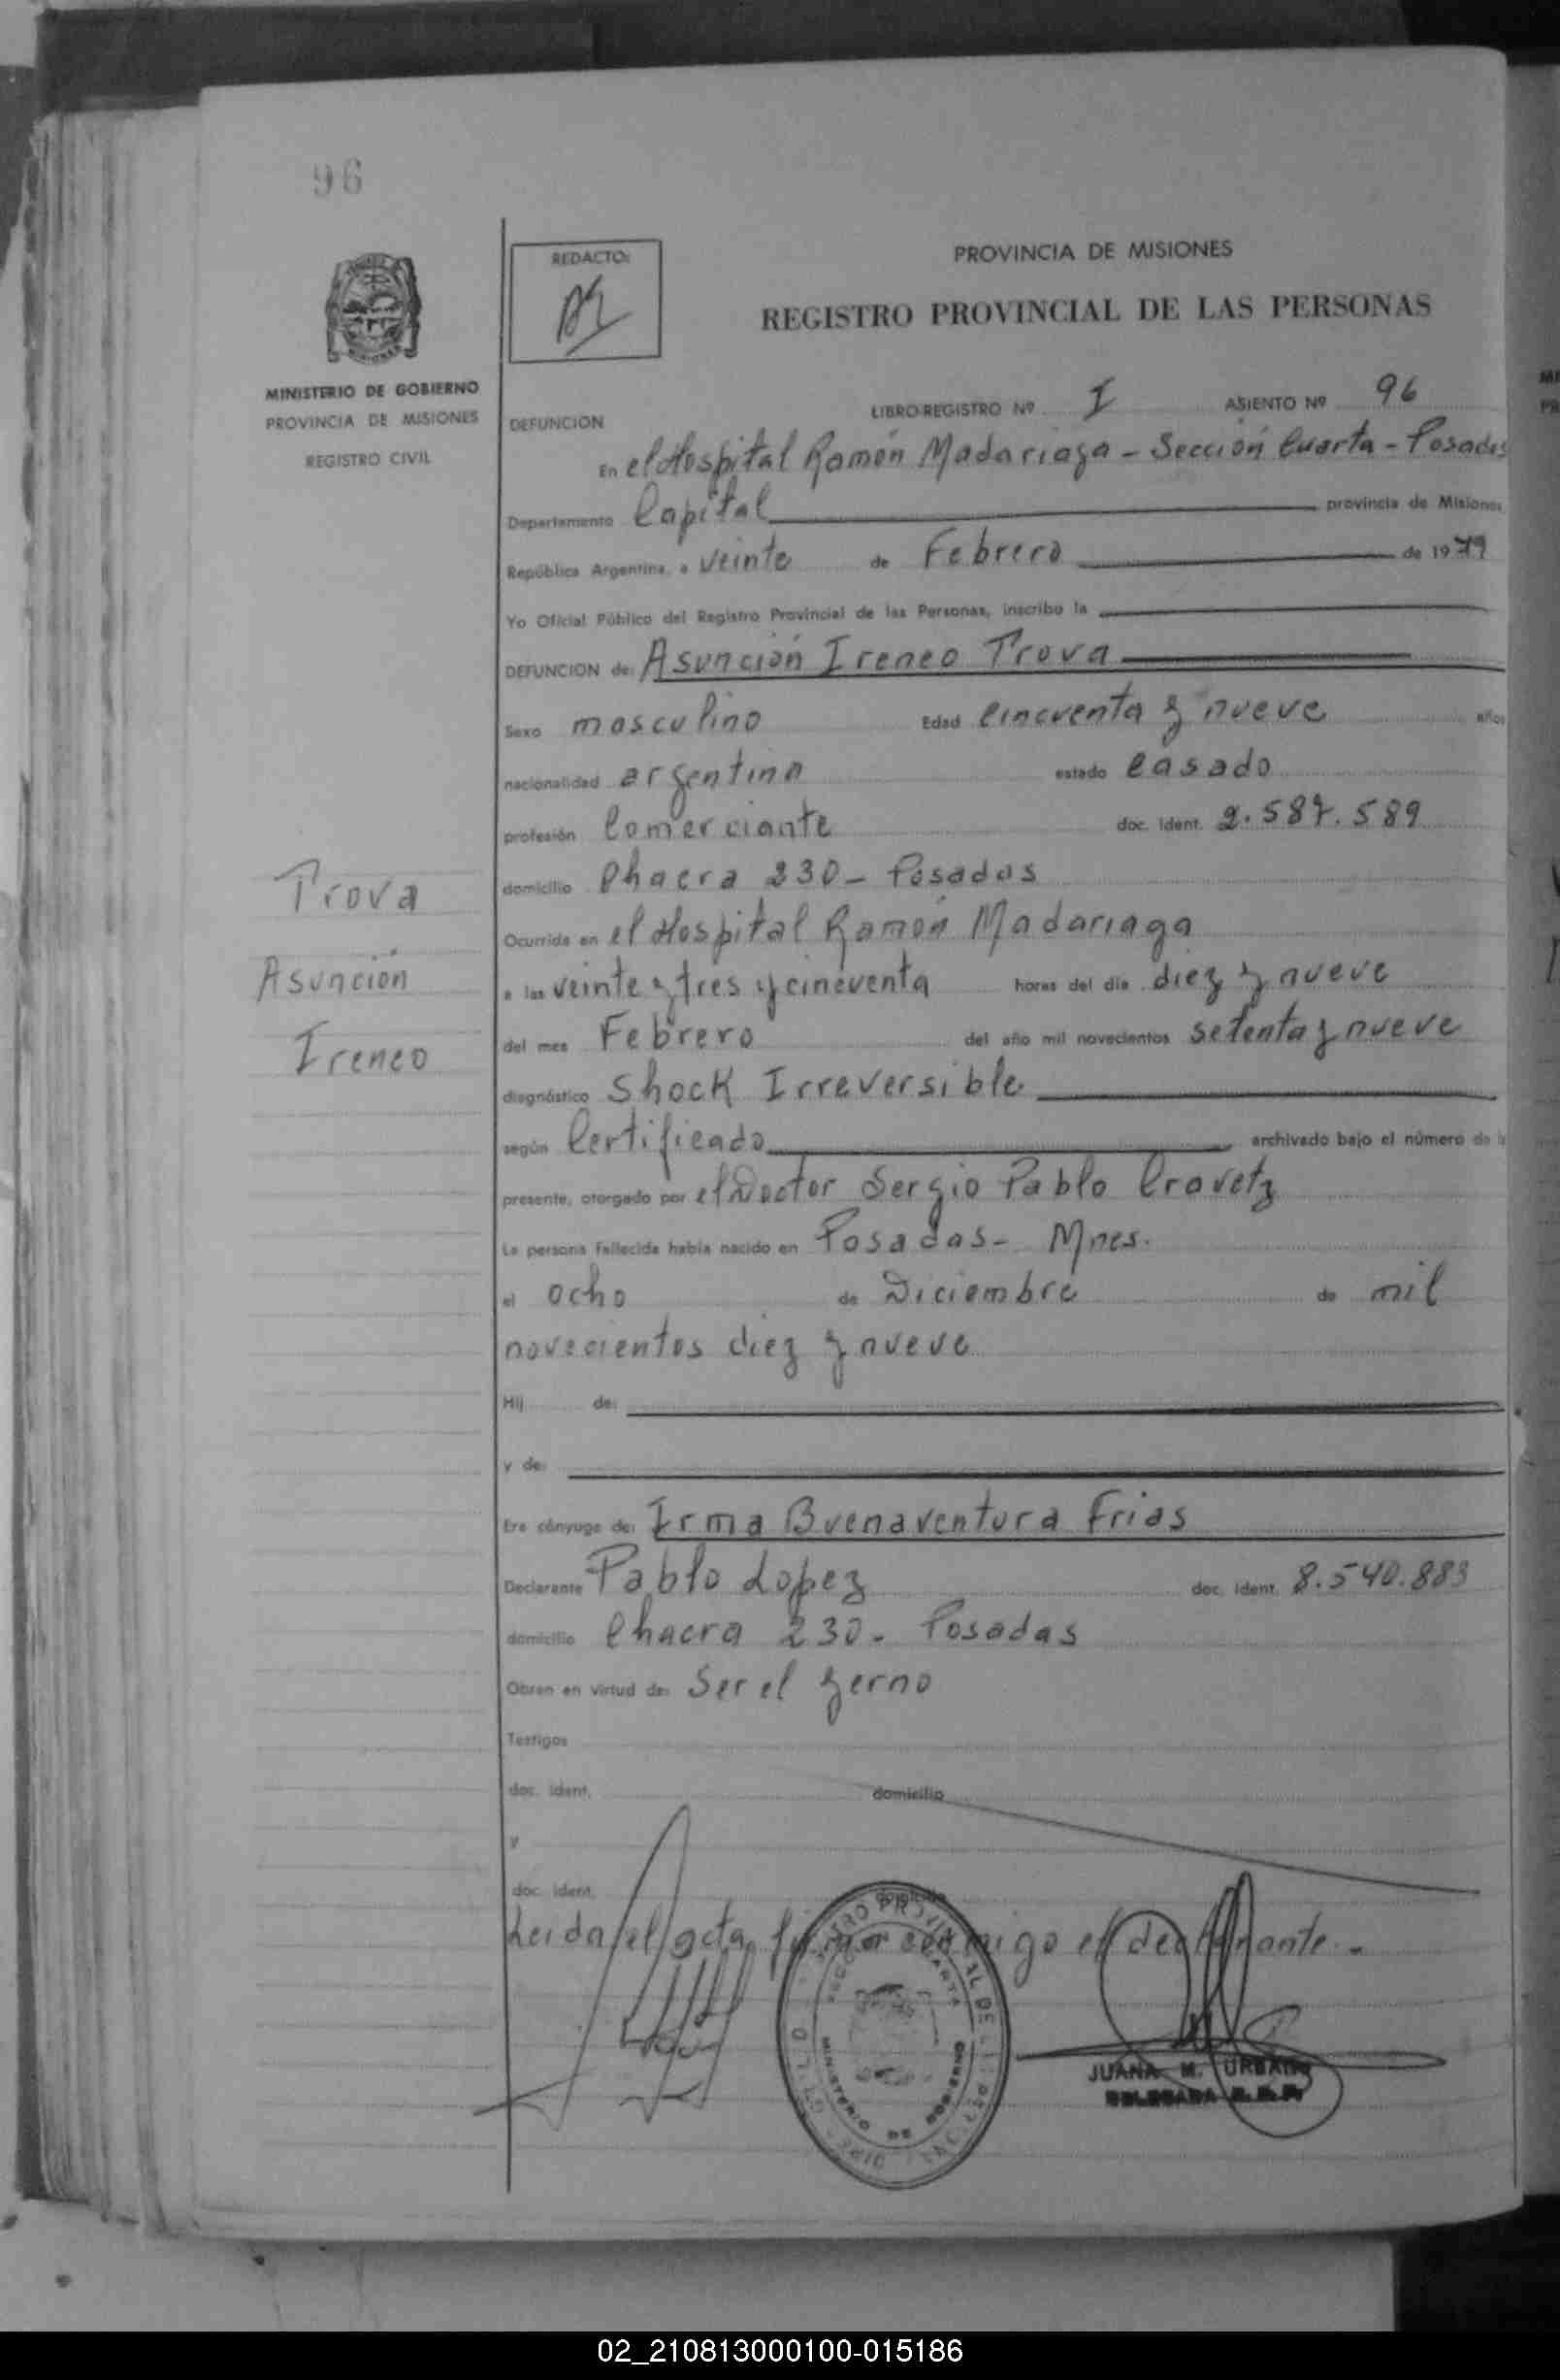 96
REDACTO:
PROVINCIA DE MISIONES
REGISTRO PROVINCIAL DE LAS PERSONAS
MINISTERIO DE GOBIERNO
PROVINCIA DE MISIONES
REGISTRO CIVIL
DEFUNCION LIBRO-REGISTRO Nº I ASIENTO Nº 96
En el Hospital Ramón Madariaga - Sección Cuarta - Posadas
Departamento Capital provincia de Misiones
República Argentina, a veinte de Febrero de 1979
Yo Oficial Público del Registro Provincial de las Personas, inscribo la
DEFUNCION de: Asunción Ireneo Trova
Sexo masculino Edad Cincuenta y nueve años
nacionalidad argentina estado Casado
profesión Comerciante doc. ident. 2.587.589
domicilio Chacra 230 - Posadas
Ocurrida en el Hospital Ramón Madariaga
a las veinte y tres y cincuenta horas del día diez y nueve
del mes Febrero del año mil novecientos setenta y nueve
diagnóstico Shock Irreversible
según Certificado archivado bajo el número de la
presente, otorgado por el Doctor Sergio Pablo Cravetz
La persona fallecida había nacido en Posadas - Mnes.
el ocho de Diciembre de mil
novecientos diez y nueve
Hij de:
y de:
Era cónyuge de: Irma Buenaventura Frias
Declarante Pablo Lopez doc. ident. 8.540.883
domicilio Chacra 230 - Posadas
Obran en virtud de: Ser el yerno
Testigos
doc. ident. domicilio
y
doc. ident. domicilio
Leida el acta, firma conmigo el declarante.-
Trova
Asunción
Ireneo
MINISTERIO DE GOBIERNO
JUANA M. URBANO
DELEGADA R.P.P.
02_210813000100-015186